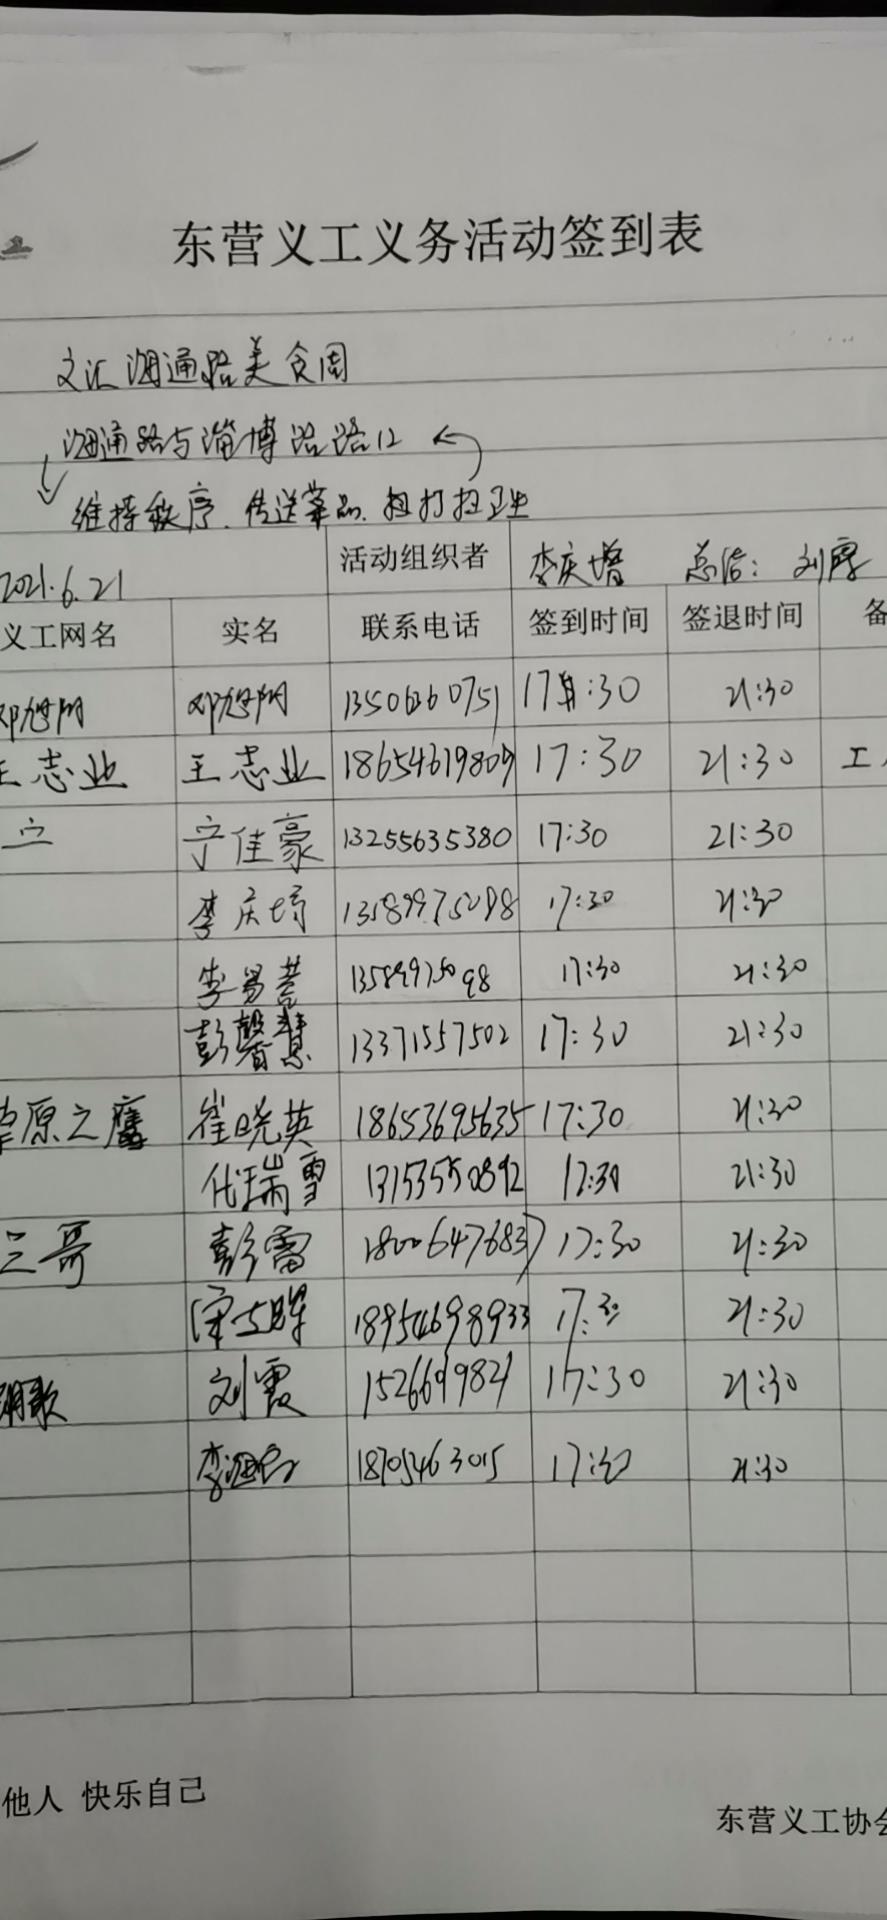 东营义工义务活动签到表
文汇海通路美食周
海通路与淄博路路口
维持秩序.传送菜品.打扫卫生
2021.6.21 活动组织者 李庆增 总结: 刘霞
义工网名 实名 联系电话 签到时间 签退时间 备
邓旭阳 邓旭阳 13506360751 17:30 21:30
王志业 王志业 18654619809 17:30 21:30 工
宁佳豪 13255635380 17:30 21:30
李庆增 13589975098 17:30 21:30
李易 13589975098 17:30 21:30
彭馨慧 13371557502 17:30 21:30
草原之鹰 崔晓英 18653695635 17:30 21:30
代瑞雪 13153550892 17:30 21:30
三哥 彭雷 18006476837 17:30 21:30
18954698933 17:30 21:30
刘霞 17:30 21:30
18705463015 17:30 21:30
他人 快乐自己
东营义工协会